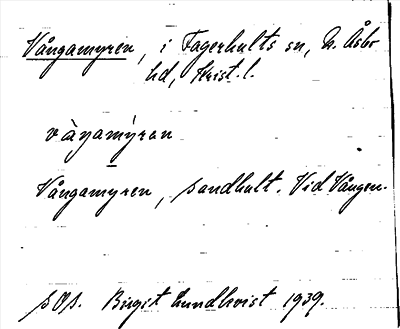 Vångamyren, i Fagerhults sn, N. Åsbo
hd, Krist. l.
vàŋamýren
Vångamyren, sandhult. Vid Vången.
sOs. Birgit Lundkvist 1939.